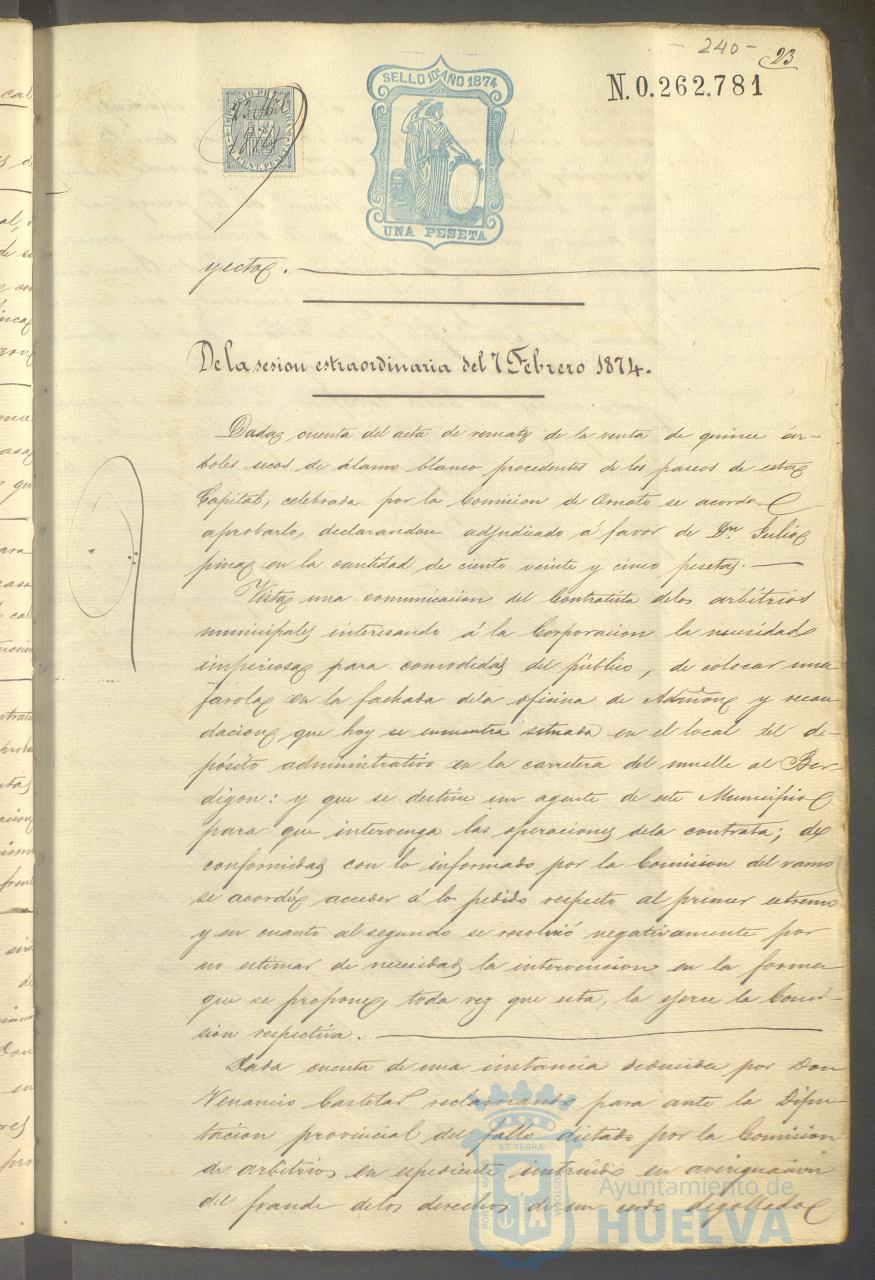 - 240 -
23
N.0.262.781
SELLO 10º AÑO 1874
UNA PESETA
yecta.
De la sesion estraordinaria del 7 Febrero 1874.
Dada cuenta del acta de remate de la venta de quince ár-
boles secos de álamo blanco procedentes de los paseos de esta
Capital, celebrada por la Comicion de Ornato se acordo
aprobarlo, declarandose adjudicado á favor de Dn. Julio
pina en la cantidad de ciento veinte y cinco pesetas.
Vista una comunicacion del Contratista delos arbitrios
municipales interesando á la Corporacion la necesidad
imperiosa para comodidad del público, de colocar una
farola en la fachada dela oficina de Admõn y recau-
dacion que hoy se encuentra situada en el local del de-
pósito administrativo en la carretera del muelle al Ber-
digon: y que se destine un agente de este Municipio
para que intervenga las operaciones dela contrata; de
conformidad con lo informado por la Comision del ramo
se acordó acceder á lo pedido respecto al primer estremo
y en cuanto al segundo se resolvió negativamente por
no estimar de necesidad la intervencion en la forma
que se propone, toda vez que esta, la ejerce la Comi-
sion respectiva.
Dada cuenta de una instancia deducida por Don
Venancio Castelar reclamando para ante la Dipu-
tacion provincial del fallo dictado por la Comision
de arbitrios en espediente instruido en averiguacion
del fraude delos derechos de un cerdo degollado
Ayuntamiento de
HUELVA